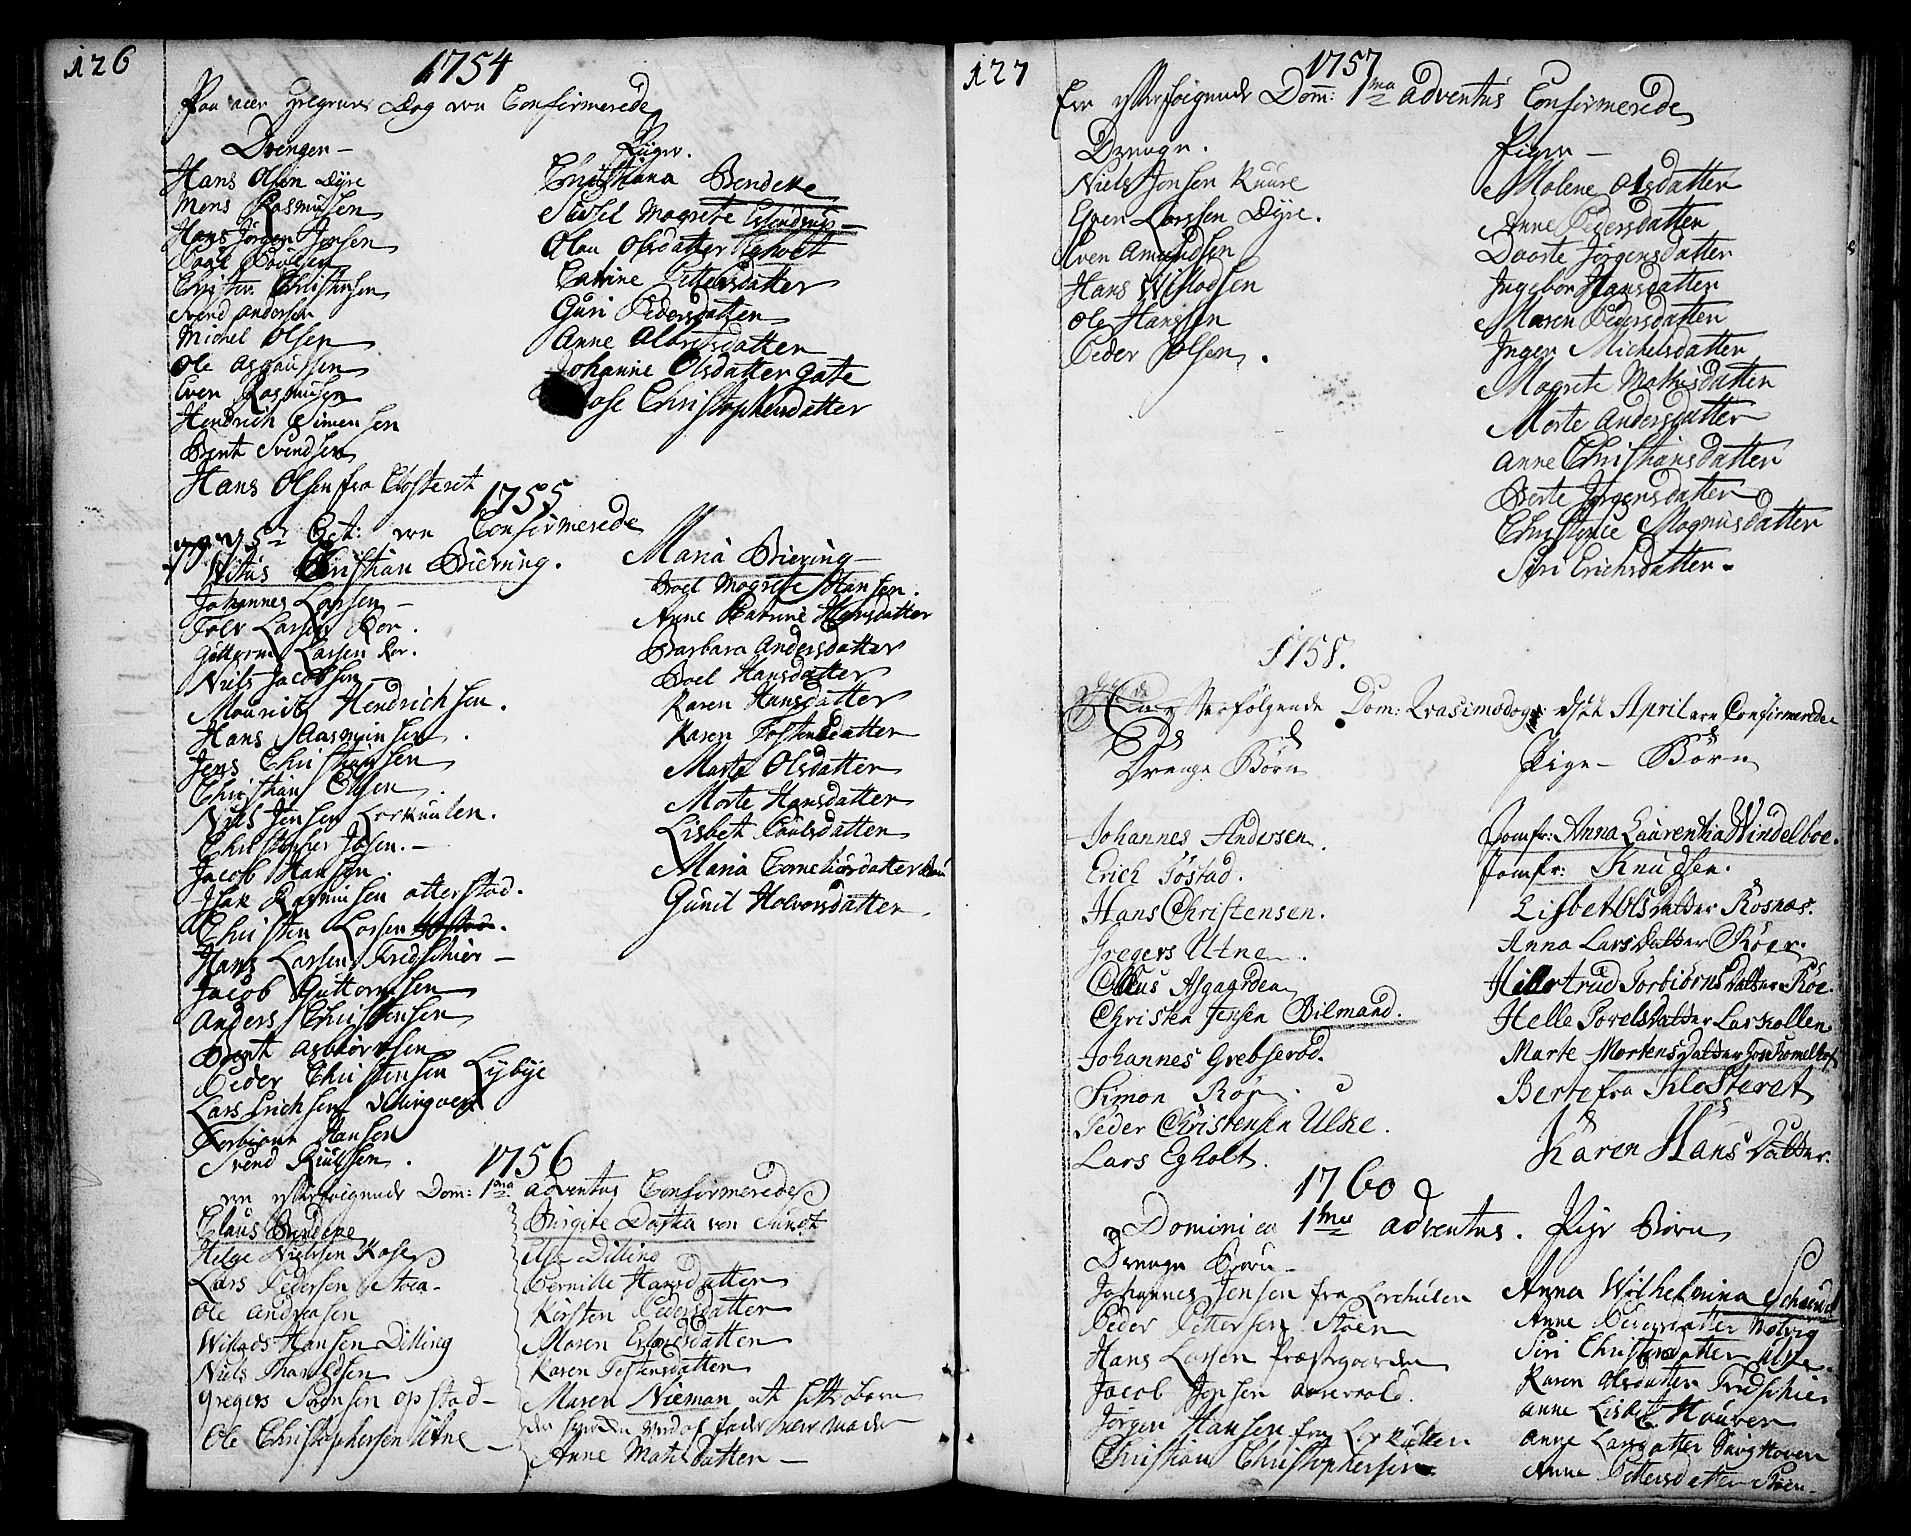 126
1754
Confirmerede
Drengen
Hans Olsen Dyre
Mons Rasmusen
Hans Jörgen Jensen
Povel Povelsen
Christen Christensen
Svend andersen
Michel Olsen
Ole
Even Rasmusen
Hendrich Simensen
Bent Svendsen
Hans Olsen fra Closteret
Piger.
Christiana Bendeke
Sissel Magrete
Olau Olsdatter Egholt
Catrine Pettersdatter
Guri Pedersdatter
Anne Albretsdatter
Johanne Olsdatter gate
Christophersdatter
1755
Oct: Confirmerede
Witus Christian Biering.
Johannes Larsen
Tolv Larsen Roer.
Guttorm Larsen Roer.
Niels Jacobsen
Mouritz Hendrichsen.
Hans Rasmusen.
Jens Christiansen
Christian Olsen
Niels Jensen Lorkuulen.
Christopher Josen.
Jacob Hansen.
Isak Rasmusen atterstad.
Christen Larsen
Hans Larsen Fredschier
Jacob Guttormsen
Anders Christensen
Bent asbiörnsen
Peder Christensen Lybye
Lars Erichsen Dilingøen
Torbiörn Hansen
Svend Knudsen.
Maria Biering
Boel Magrete Hansen.
Anne Catrine Hansdatter
Barbara Andersdatter
Boel Hansdatter
Karen Hansdatter
Karen Tostensdatter
Marte Olsdatter
Morte Hansdatter
Lisbet Poulsdatter
Maria Corneliusdatter
Gunil Halvorsdatter.
1756
Dom: 1ma adventus Confirmerede
Claus Bendeke
Helge Nielsen Kase
Lars Pedersen Støen
Ole andreasen
Willads Hansen Dilling
Niels Tharaldsen
gregers Sørensen opstad
Ole Christophersen Utne
Birgite Dortea von Sundt
Else Dilling
Pernille Hansdatter
Kirsten Pedersdatter
Maren Evensdatter
Karen Tostensdatter
Maren Nieman
Anne Matisdatter
127
1757
Dom: 1ma adventus Confirmerede
Drenge.
Niels Jensen Kuure
Even Larssen Dyre.
Even Amundsen
Hans Willadsen
Ole Hanssen
Peder Olsen.
Piger
Malene Olsdatter
Anne Pedersdatter
Daarte Jörgensdatter
Ingebor Hansdatter
Maren Pedersdatter
Inger Michelsdatter
Magrete Matisdatter
Morte Andersdatter
Anne Christiansdatter
Berte Jörgensdatter
Magnusdatter
Siri Erichsdatter.
1758.
Efterfølgende Dom: Qvasimodog: April ere Confirmerede
Drenge Börn
Johannes Andersen.
Erich Töstad.
Hans Christensen.
Gregers Utne.
Asgaarden
Christen Jensen Bilmand.
Johannes Grebserod.
Simon Röy.
Peder Christensen Ulke.
Lars Egholt.
Pige Börn
Jomfr: Anna Laurentia Windelboe.
Jomfr: Knudsen.
Lisbet Olsdatter Rosnas.
Anna Larsdatter Röer.
Torbiörnsdatter Röe.
Helle Torelsdatter Larkollen
Marte Mortensdatter
Berte fra Klosteret
Karen Hansdatter.
1760
Dominica 1ma adventus.
Drenge Börn
Johannes Jensen fra Lorchulen
Peder Pettersen Støen
Hans Larsen Præstegaarden
Jacob Jensen
Jörgen Hansen fra Lorkullen
Christian Christophersen
Pige Börn
Anna Wilhelmina
Anne Pedersdatter
Siri Christensdatter Ulke
Karen Olsdatter Fredschier
Anne Lisbet
Anne Larsdatter
Anne Pettersdatter Støen